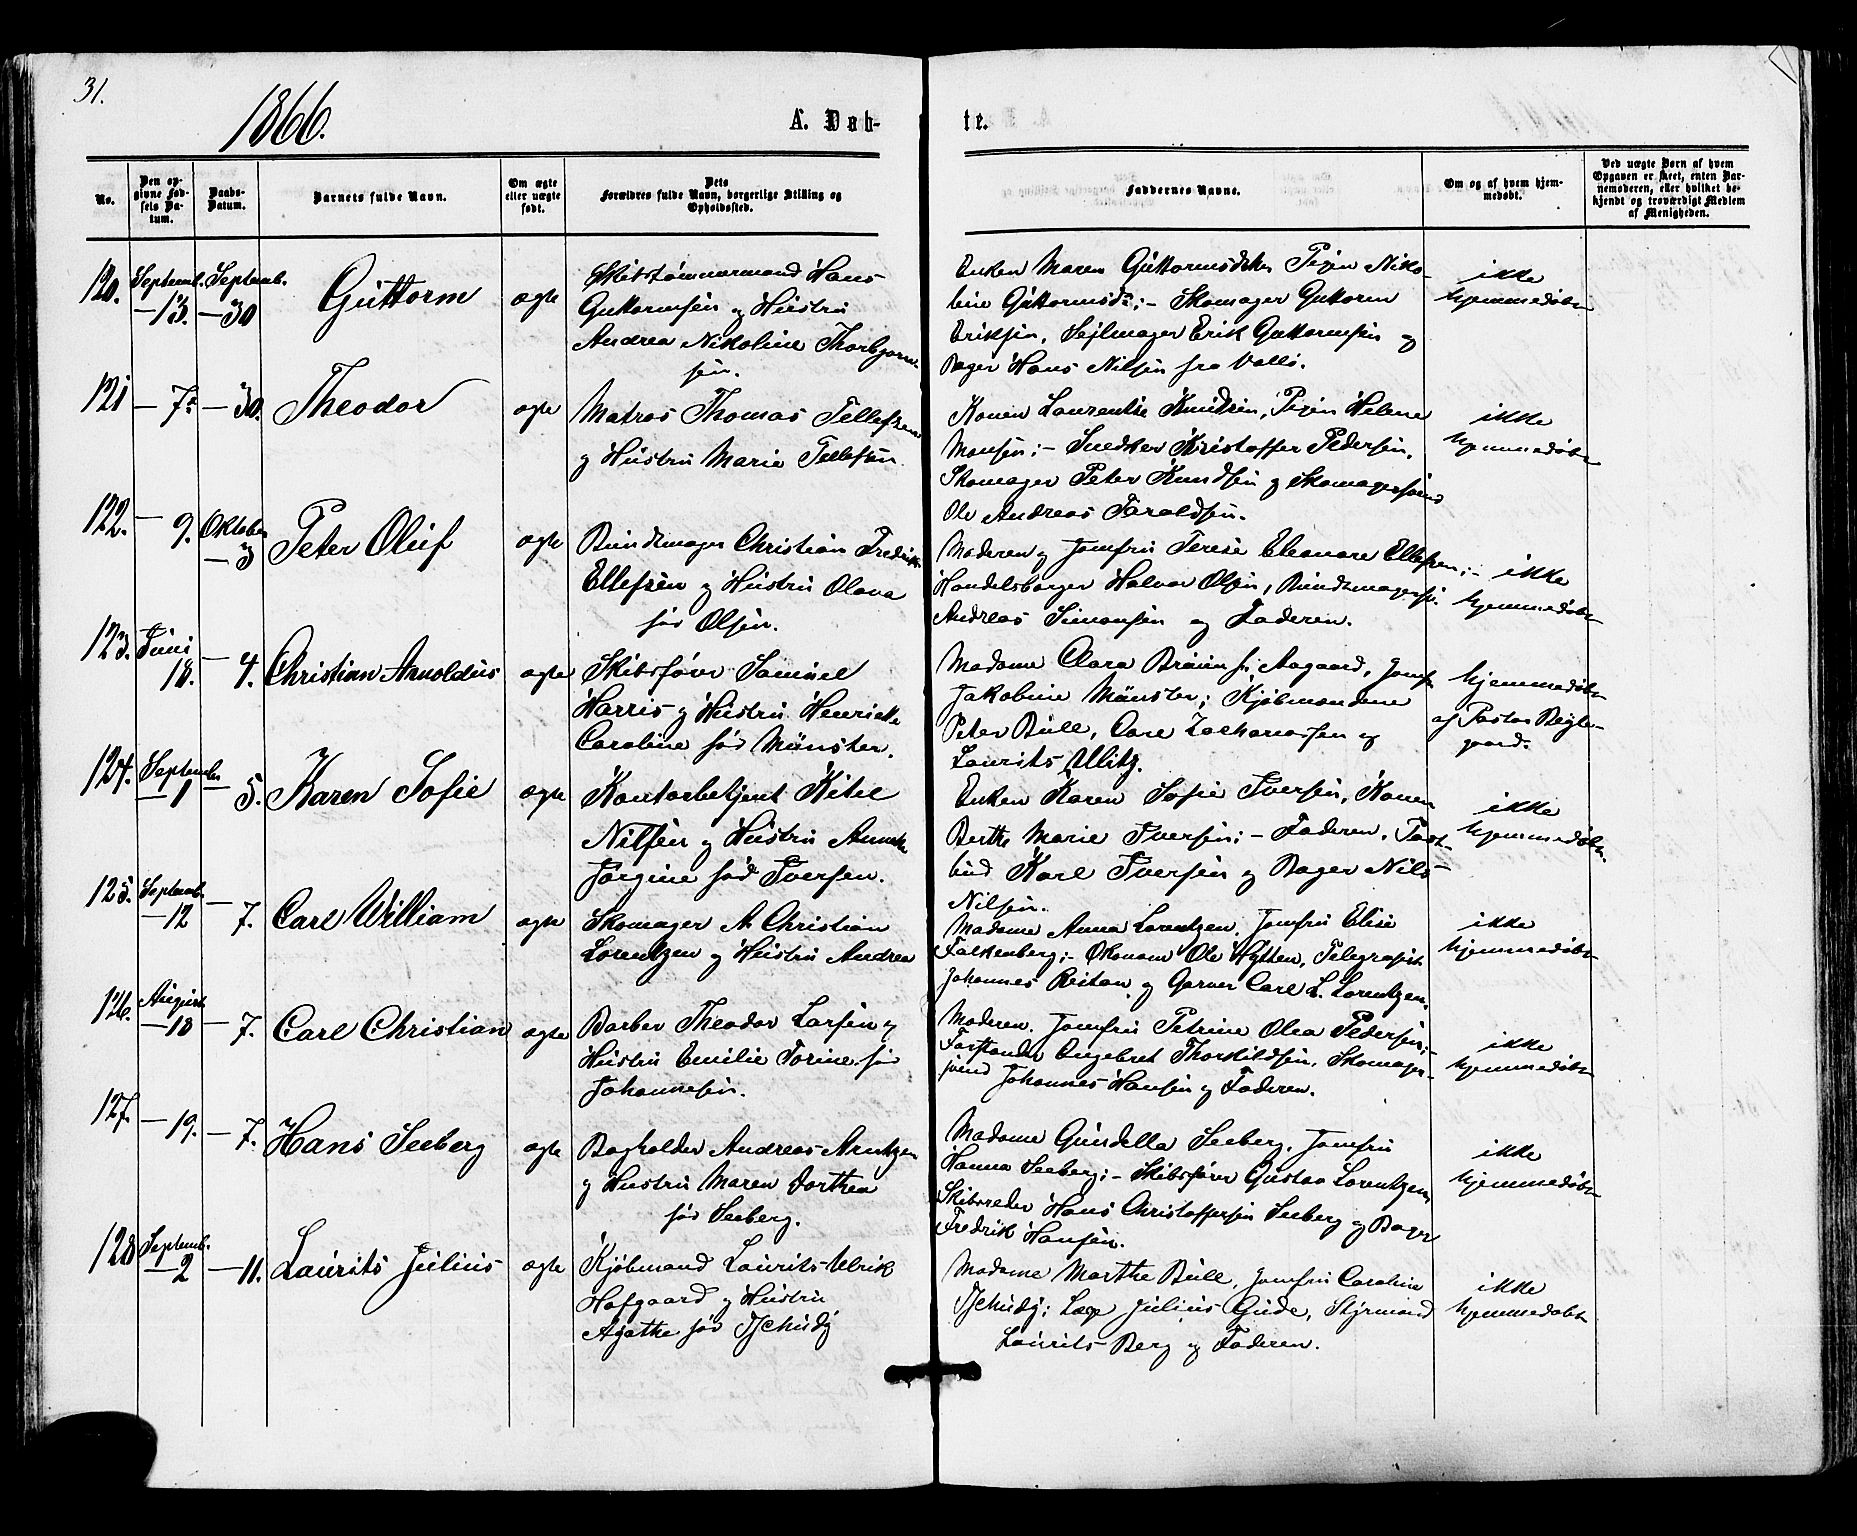 31.
1866.
A. Døb-
te.
No.
Den op-
givne Fød-
sels Da-
tum.
Daabs-
Datum.
Barnets fulde Navn.
Om ægte
eller uægte
født.
Dets
Forældres fulde Navn, borgerlige Stilling og
Opholdssted.
Faddernes Navne.
Om og af hvem hjem-
medøbt.
Ved uægte Børn af hvem
Opgaven er skeet, enten Bar-
nemoderen, eller hvilket be-
kjendt og troværdigt Medlem
af Menigheden.
120.
Septemb.
— 13.
Septemb.
— 30
Guttorm
ægte
Skibstømmermand Hans
Guttormsen og Hustru
Andrea Nikoline Thorbjørn-
sen.
Enken Maren Guttormsdtr Pigen Niko-
line Guttormsdr; — Skomager Guttorm
Eriksen, Sejlmager Erik Guttormsen og
Bager Hans Nilsen fra Vallø.
ikke
hjemmedøbt
121
— 7.
— 30.
Theodor
ægte
Matros Thomas Tellefsen
og Hustru Marie Tellefsen.
Konen Laurentse Knudsen, Pigen Helene
Monsen; — Snedker Kristoffer Pedersen,
Skomager Peter Knudsen og Skomagersvend
Ole Andreas Taraldsen.
ikke
hjemmedøbt
122.
— 9.
Oktober
— 3
Peter Oluf
ægte
Bundtmager Christian Fredrik
Ellefsen og Hustru Olava
fød Olsen.
Moderen og Jomfru Terese Eleonore Ellefsen; —
Handelsborger Halvor Olsen, Bundtmagersv.
Andreas Simonsen og Faderen.
ikke
hjemmedøbt
123.
Juni
18.
— 4.
Christian Arnoldus
ægte
Skibsfører Samuel
Harris og Hustru Henriette
Caroline fød Münster.
Madame Clara Bruun f. Aagaard, Jomfr.
Jakobine Münster; Kjøbmændene
Peter Bull, Carl Zachariassen og
Laurits Ullitz.
hjemmedøbt
af Pastor Bugge-
gaard.
124.
September
— 1
— 5.
Karen Sofie
ægte
Kontorbetjent Kitil
Nilsen og Hustru Annette
Jørgine fød Iversen.
Enken Karen Sofie Iversen, Konen
Berthe Marie Iversen; — Faderen, Post-
bud Karl Iversen og Bager Nils
Nilsen.
ikke
hjemmedøbt.
125.
Septemb.
— 12
— 7.
Carl William
ægte
Skomager A. Christian
Lorentzen og Hustru Andrea
Madame Anna Lorentzen, Jomfru Elise
Falkenberg; — Økonom Ole Hytten, Telegrafist
Johannes Reitan og Garver Carl L. Lorentzen.
ikke
hjemmedøbt
126.
August
— 18
— 7.
Carl Christian
ægte
Barber Theodor Larsen og
Hustru Emilie Torine fød
Johannesen.
Moderen. Jomfru Petrine Olea Pedersen; —
Forstander Engebret Thorkildsen, Skomager-
svend Johannes Hansen og Faderen.
ikke
hjemmedøbt
127.
— 19.
— 7.
Hans Seeberg
ægte
Bogholder Andreas Arntzen
og Hustru Maren Dorthea
fød Seeberg.
Madame Gundella Seeberg, Jomfru
Hanna Seeberg; — Skibsfører Gustav Lorentzen,
Skibsreder Hans Christoffersen Seeberg og Bager
Fredrik Hansen.
ikke
hjemmedøbt
128
Septemb.
— 2
— 11.
Laurits Julius
ægte
Kjøbmand Laurits Ulrik
Hofgaard og Hustru
Agathe fød Tschudy
Madame Marthe Bull, Jomfru Caroline
Tschudy; Læge Julius Gude, Styrmand
Laurits Berg og Faderen.
ikke
hjemmedøbt